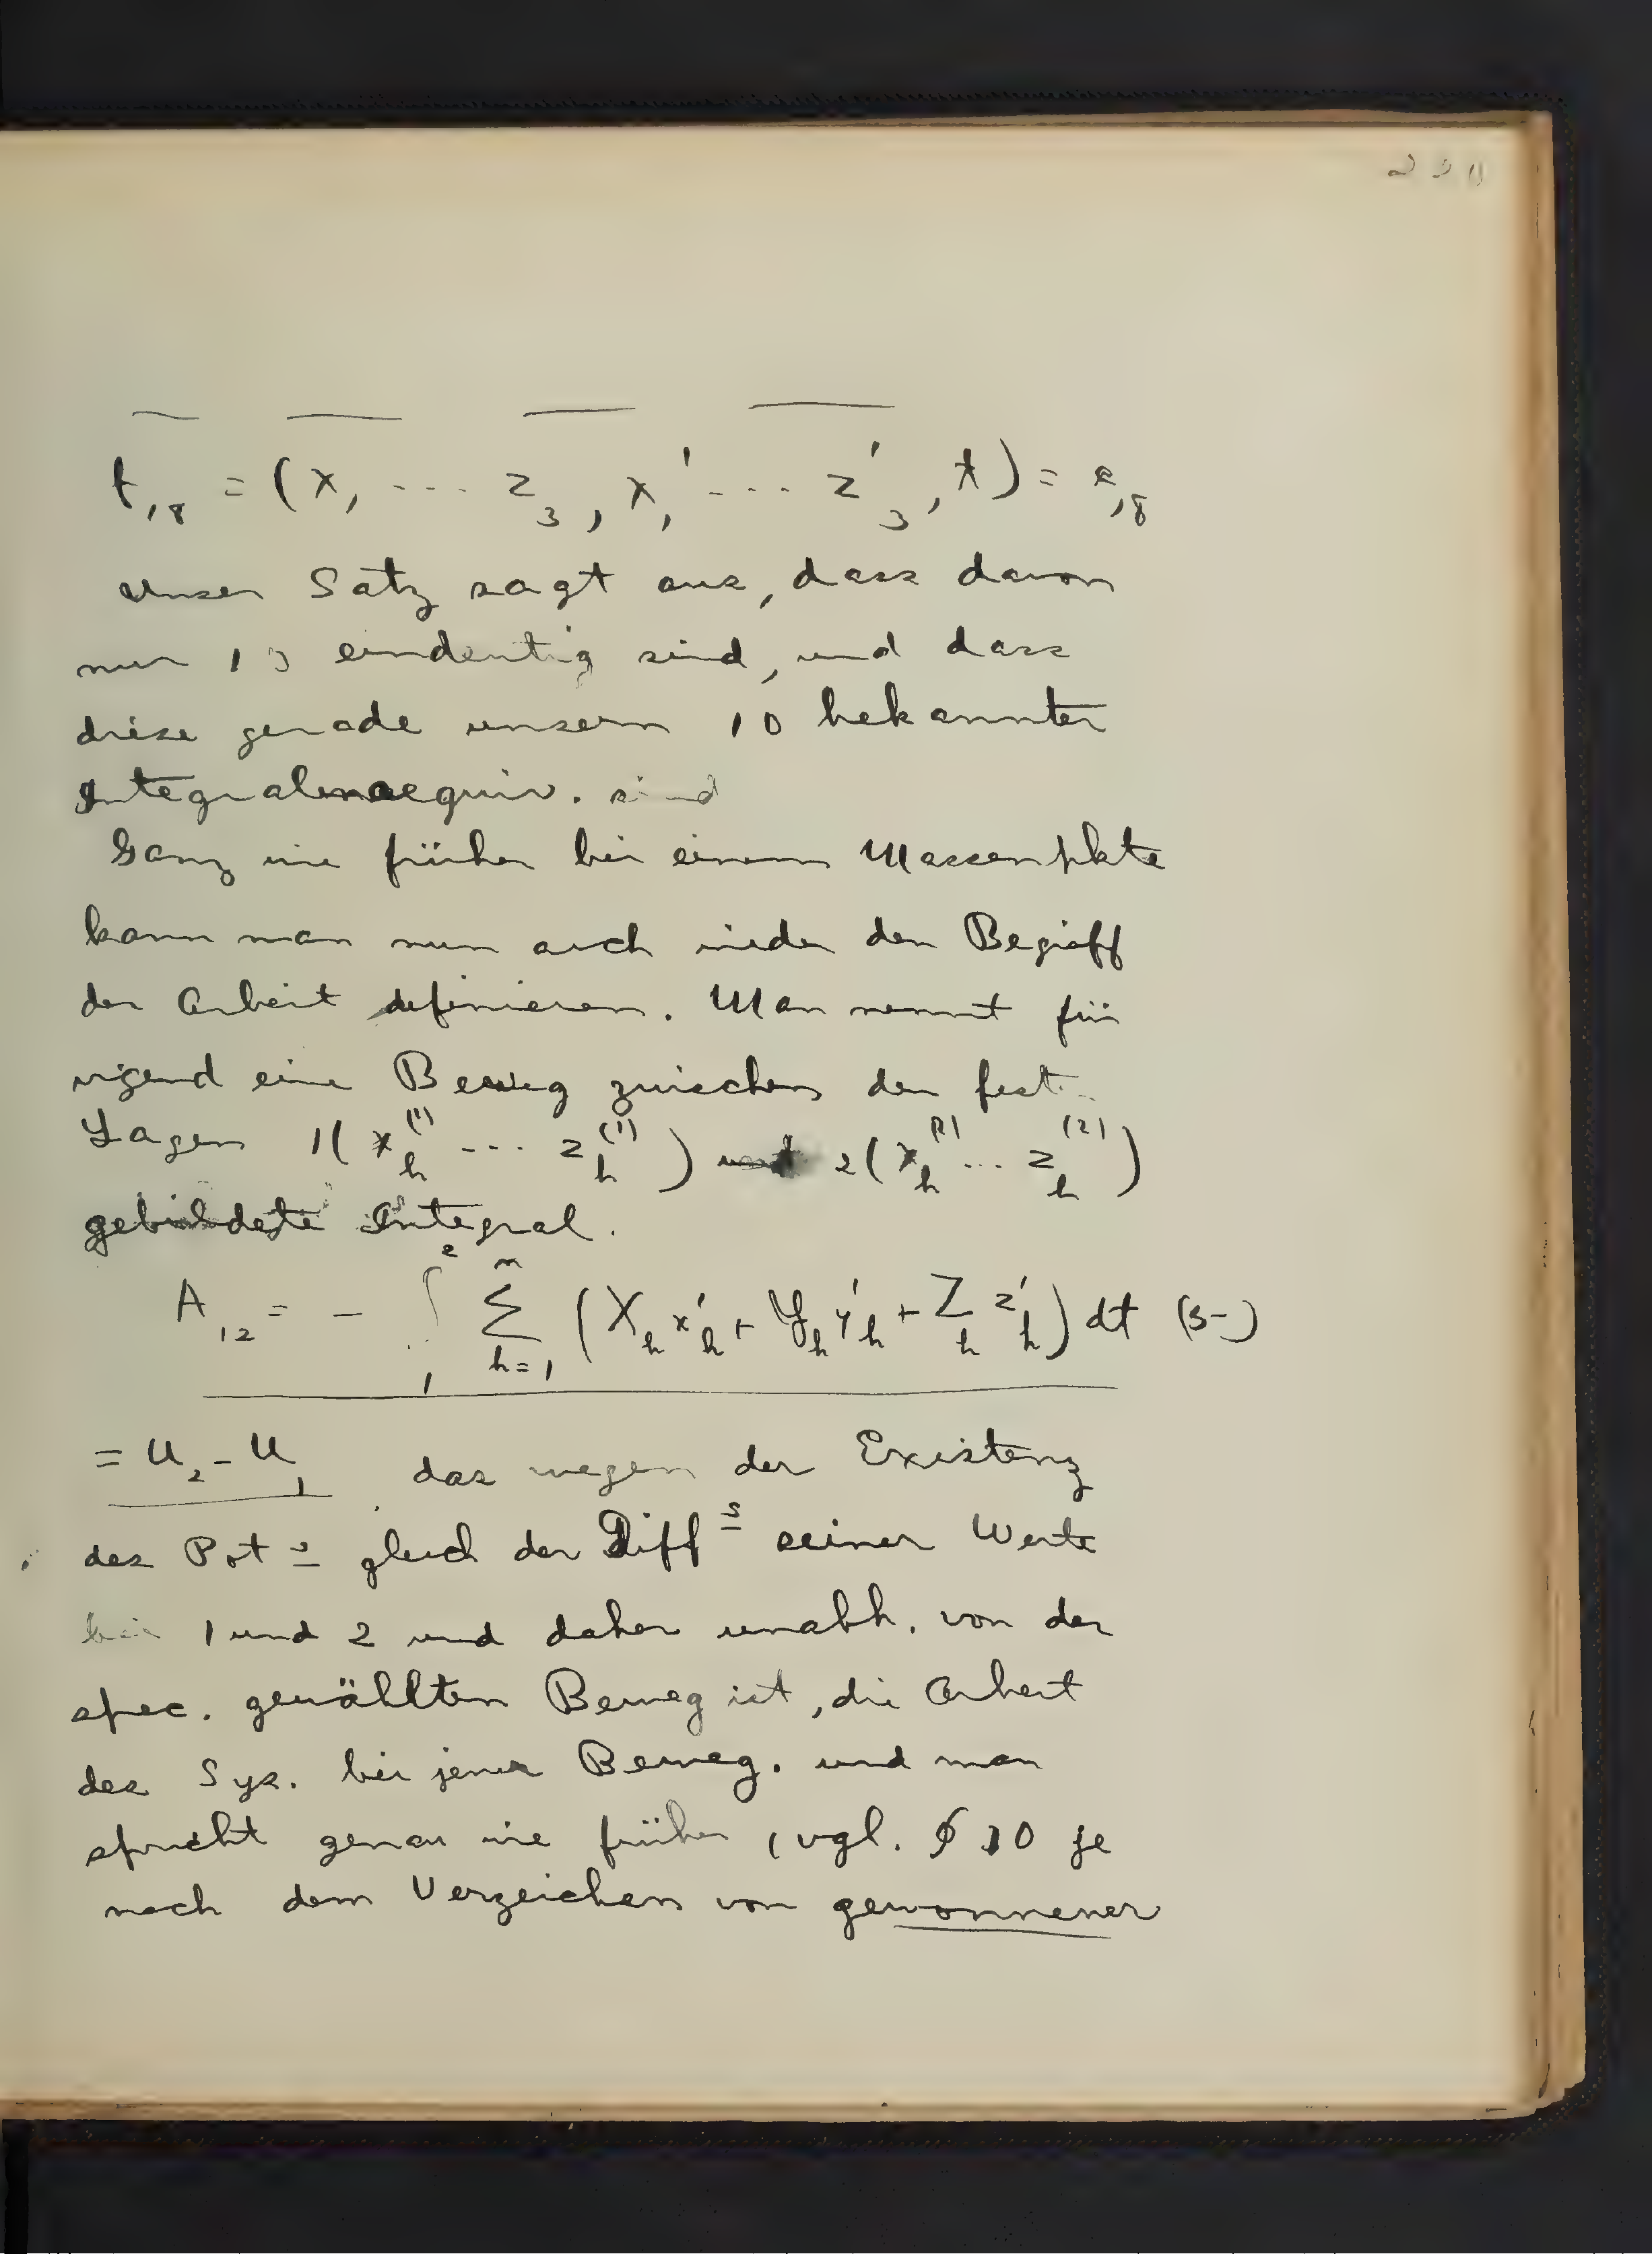 230
f₁₈ = (x₁ ... z₃, x₁' ... z₃', t) = c₁₈
Unser Satz sagt aus, dass davon
nur 10 eindeutig sind, und dass
diese gerade unsern 10 bekannten
Integralen aequiv. sind
Ganz wie früher bei einem Massenpkte
kann man nun auch wieder den Begriff
der Arbeit definieren. Man nennt für
irgend eine Beweg zwischen den fest.
Lagen 1(x_h^(1) ... z_h^(1)) und 2(x_h^(2) ... z_h^(2))
gebildete Integral.
A₁₂ = - ∫₁² Σ_{h=1}^n (X_h x'_h + Y_h y'_h + Z_h z'_h) dt (5-)
= U₂ - U₁ das wegen der Existenz
des Pot s gleich der Diff s seiner Werte
bei 1 und 2 und daher unabh. von der
spec. gewählten Beweg ist, die Arbeit
des Sys. bei jener Beweg. und man
spricht genau wie früher (vgl. § 10 je
nach dem Verzeichen von gewonnener